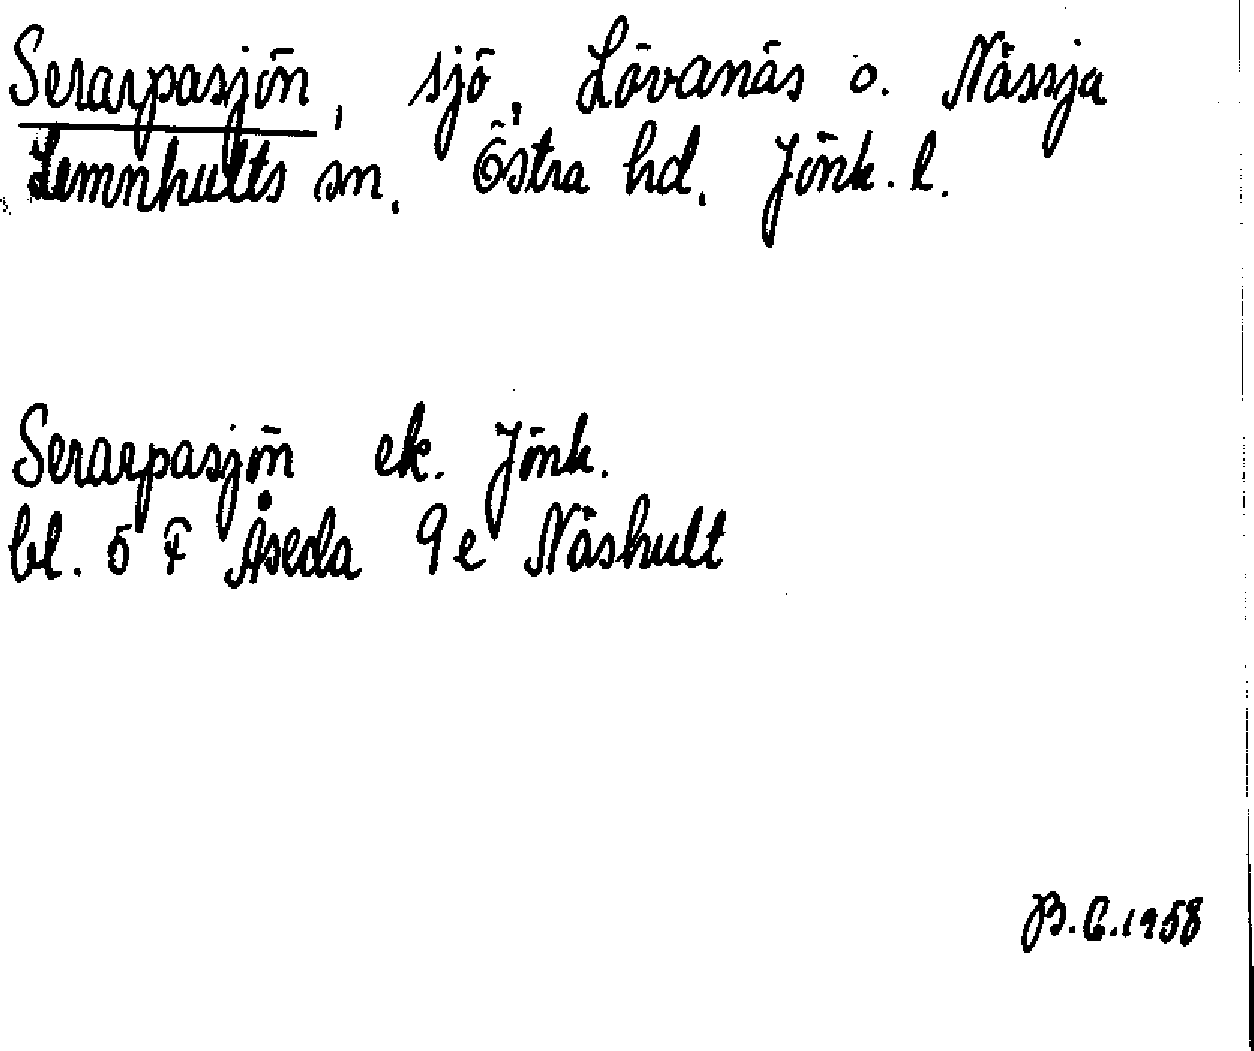 Serarpasjön, sjö, Lövanäs o. Nässja
Lemnhults sn. Östra hd. Jönk. l.
Serarpasjön ek. Jönk.
bl. 5 F Åseda 9e Näshult
B.C. 1958